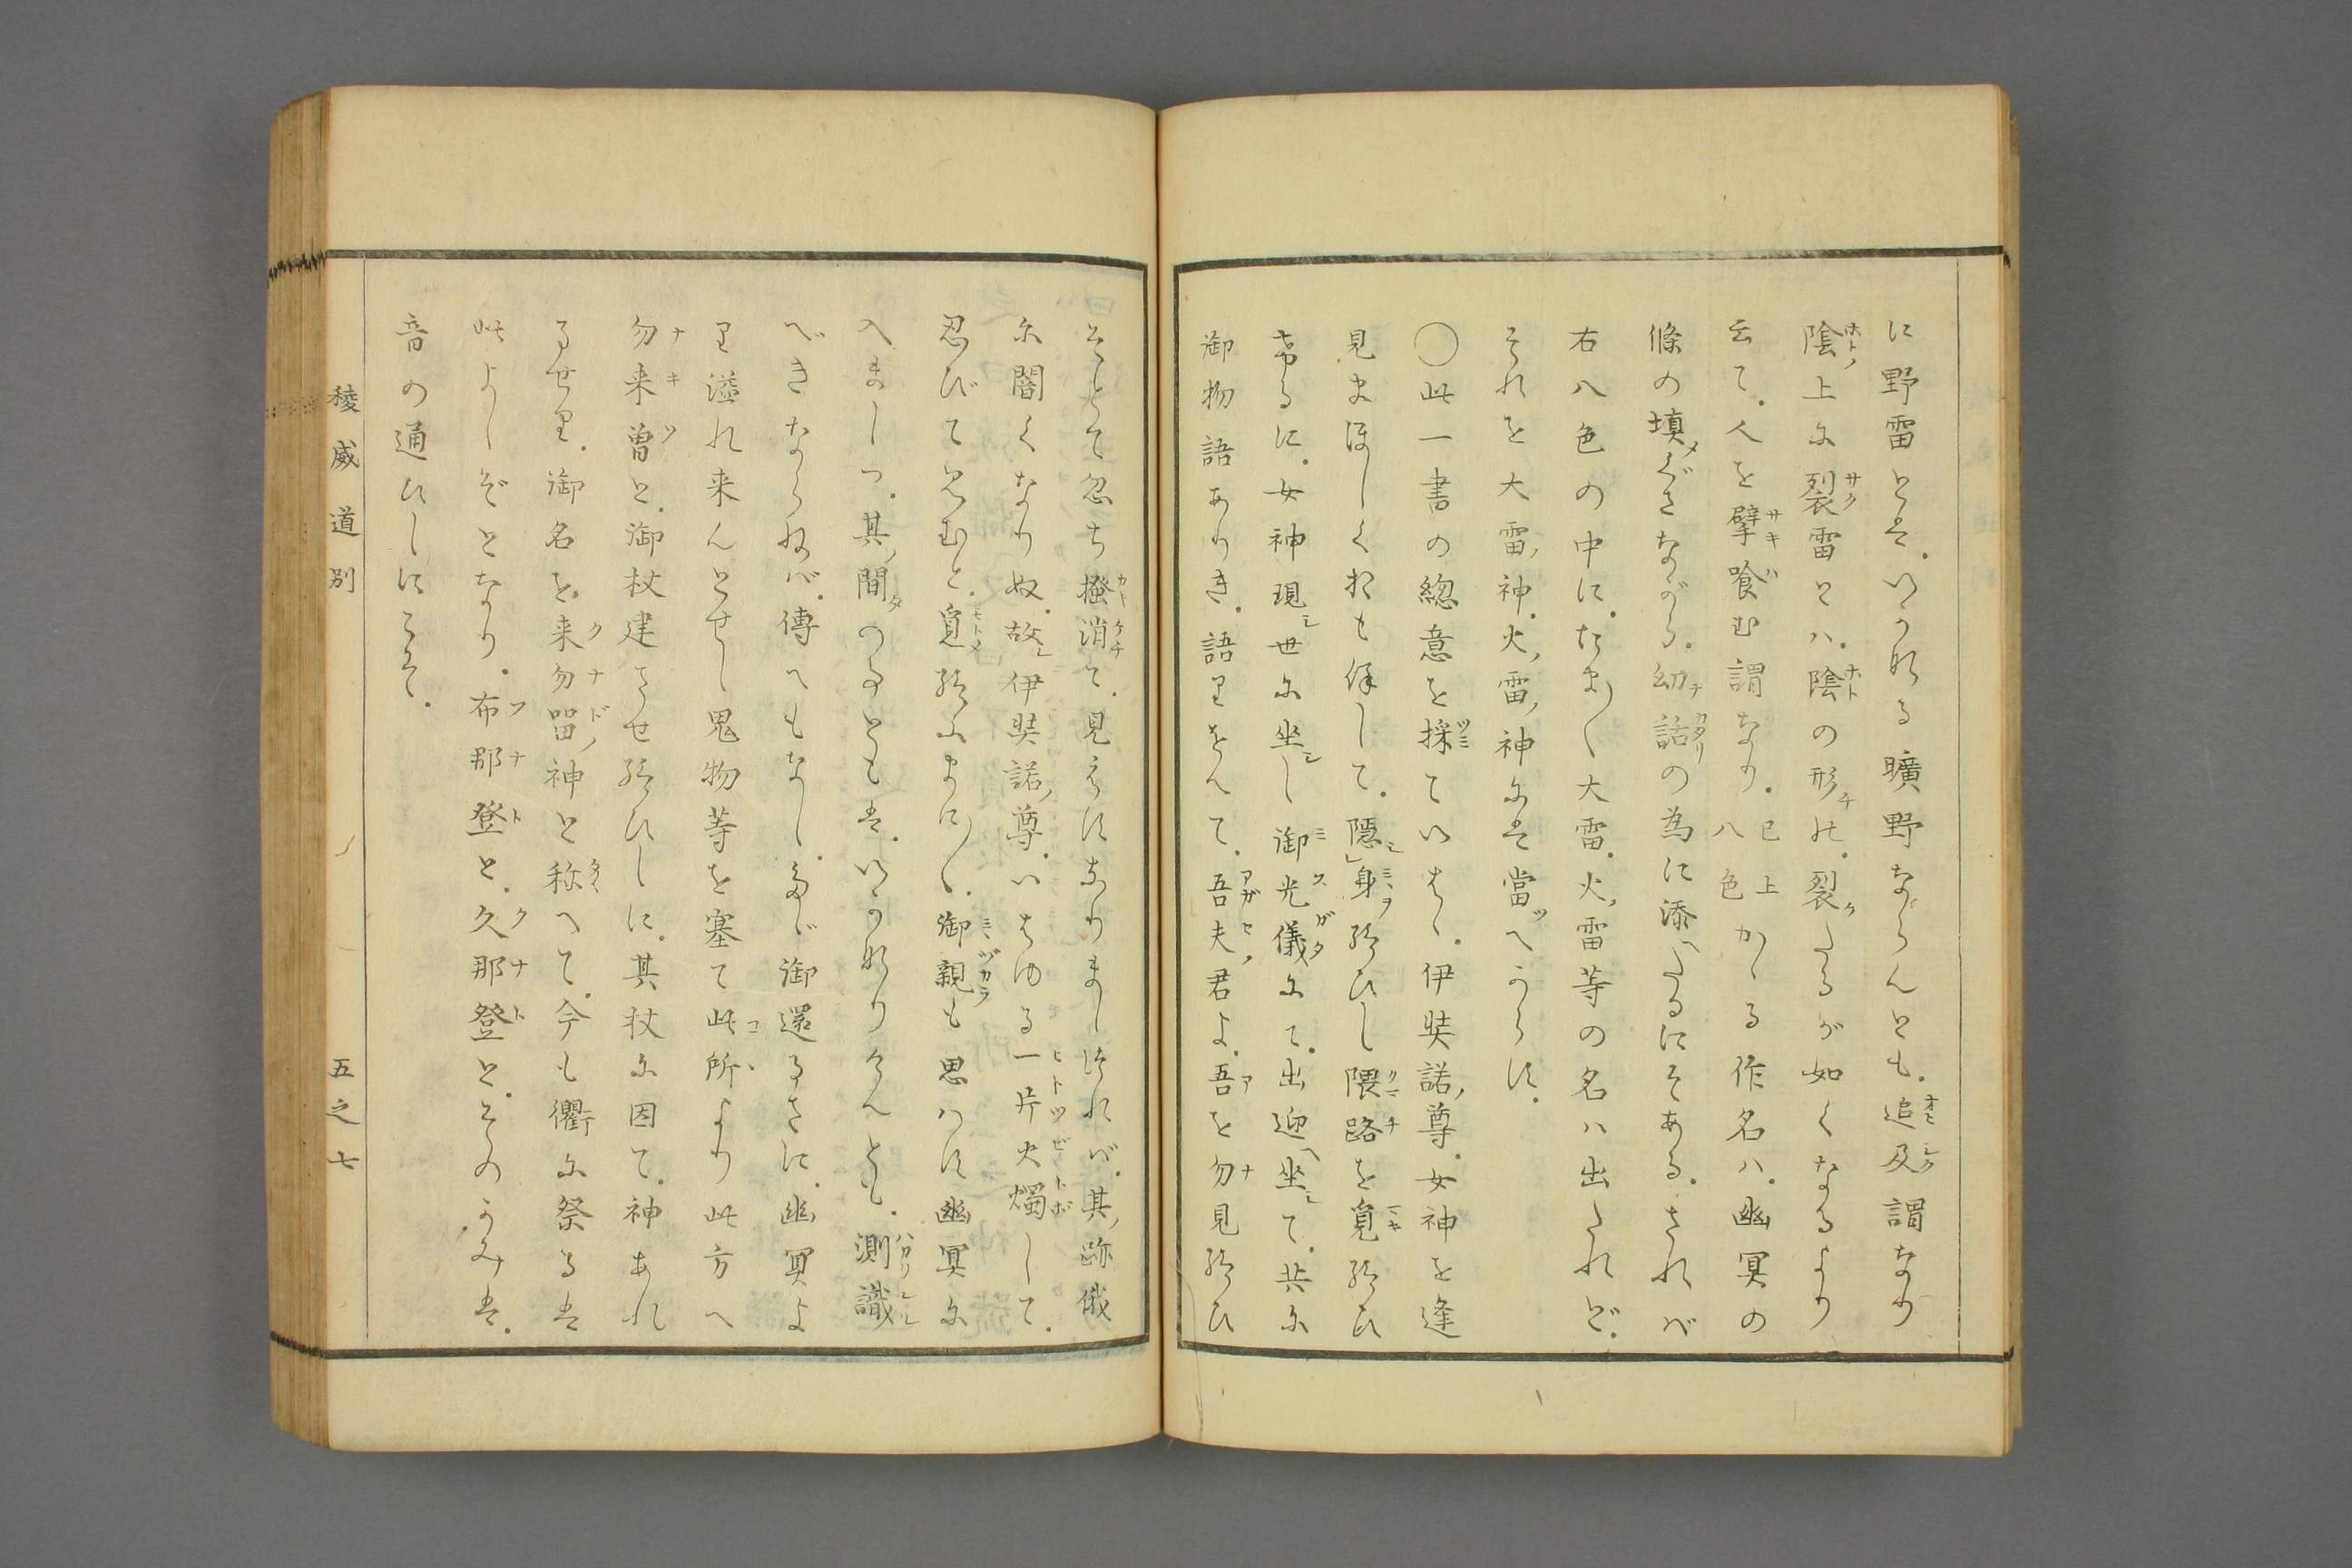 に野雷とは。いかなる曠野ならんとも。追及謂なり
陰上に裂雷とハ。陰の形の。裂たるが如くなるより
云て。人を擘喰む謂なり。已上八色かゝる作名ハ。幽冥の
條の填ぐさながら。幼話の為に添たるにそある。されバ
右八色の中に。たま〱大雷。火雷等の名ハ出たれど。
それを大雷神。火雷神には當へからず。
○此一書の総意を採ていはゝ。伊奘諾尊。女神を逢
見まほしくおも保して。隠身給ひし隈路を覓給ひ
しに。女神現世に坐し御光儀にて。出迎坐て。共に
御物語ありき。語りをへて。吾夫君よ。吾を勿見給ひ
そとて忽ち掻消て。見えずなりましければ。其跡俄
に闇くなり奴。故伊奘諾尊。いはゆる一片火燭して。
忍びて見むと。覓給ふまに〱。御親も思ハず幽冥に
入ましつ。其間の事ども は。いかなりけんとも。測識
べきならねバ。傳へもなし。さて御還るさに。幽冥よ
り溢れ来んとせし鬼物等を塞て此所より此方へ
勿来曽と。御杖建させ給ひしに。其杖に因て。神あれ
ませり。御名を。来勿留神と称へて。今も衢に祭るは
此よしぞとなり。布那登と。久那登と。そのかみは。
音の通ひしにこそ。
稜威道別
五之七